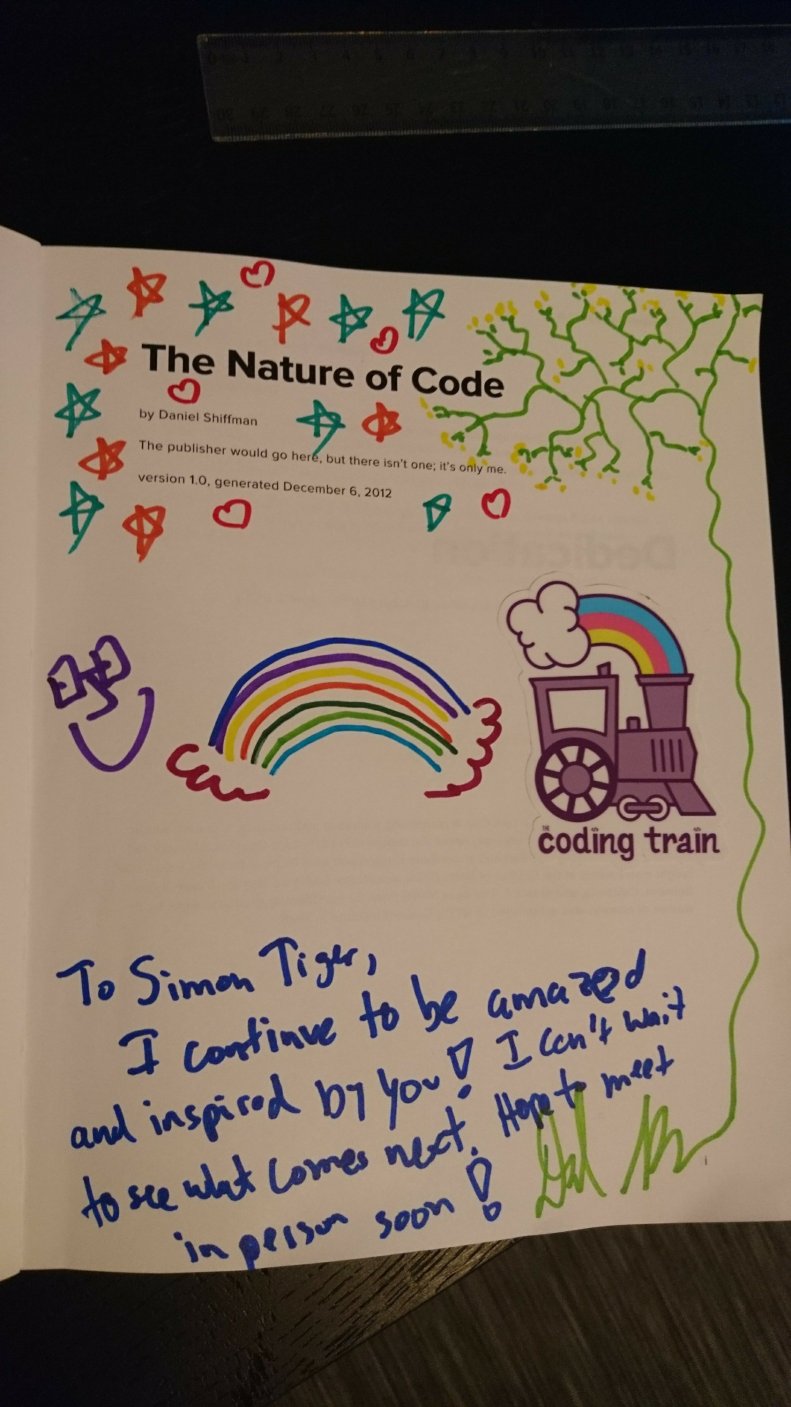 The Nature of Code
by Daniel Shiffman
The publisher would go here, but there isn't one; it's only me.
version 1.0, generated December 6, 2012
Dedication
THE
coding train
To Simon Tiger,
I continue to be amazed
and inspired by you! I can't wait
to see what comes next. Hope to meet
in person soon!
i